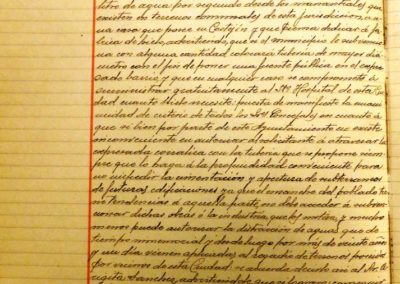 litro de agua por segundo desde los manantiales que
existen en terrenos comunales de esta jurisdicion, a
una casa que pone en y que piensa dedicar á fá
brica de hielo, advirtiendo, que si el municipio le subvencio
na con alguna cantidad colocará tubería de mayor diá
metro con el fin de poner una fuente pública en el expre
sado barrio y que en cualquier caso se compromete á
suministrar gratuitamente al Sto. Hospital de esta Ciu
dad cuanto hielo necesite: puesta de manifiesto la unani
midad de criterio de todos los Sres. Concejales en cuanto á
que si bien por parte de este Ayuntamiento no existe
inconveniente en autorizar al solicitante á atravesar la
expresada con la tubería que se propone siem
pre que lo haga á la profundidad conveniente para
no impedir la cimentación y apertura de subterraneos
de futuras edificaciones ya que el ensanche del poblado tie
ne tendencias á aquella parte, no debe acceder á subven
cionar dichas obras é la industria que las motiva, y mucho
menos puede autorizar la distracción de aguas que de
tiempo inmemorial y desde luego por más de veinte años
y un dia vienen aplicadas al regadio de terrenos
por vecinos de esta Ciudad: se acuerda decirlo así al Sr.
Sanchez, advirtiendole que